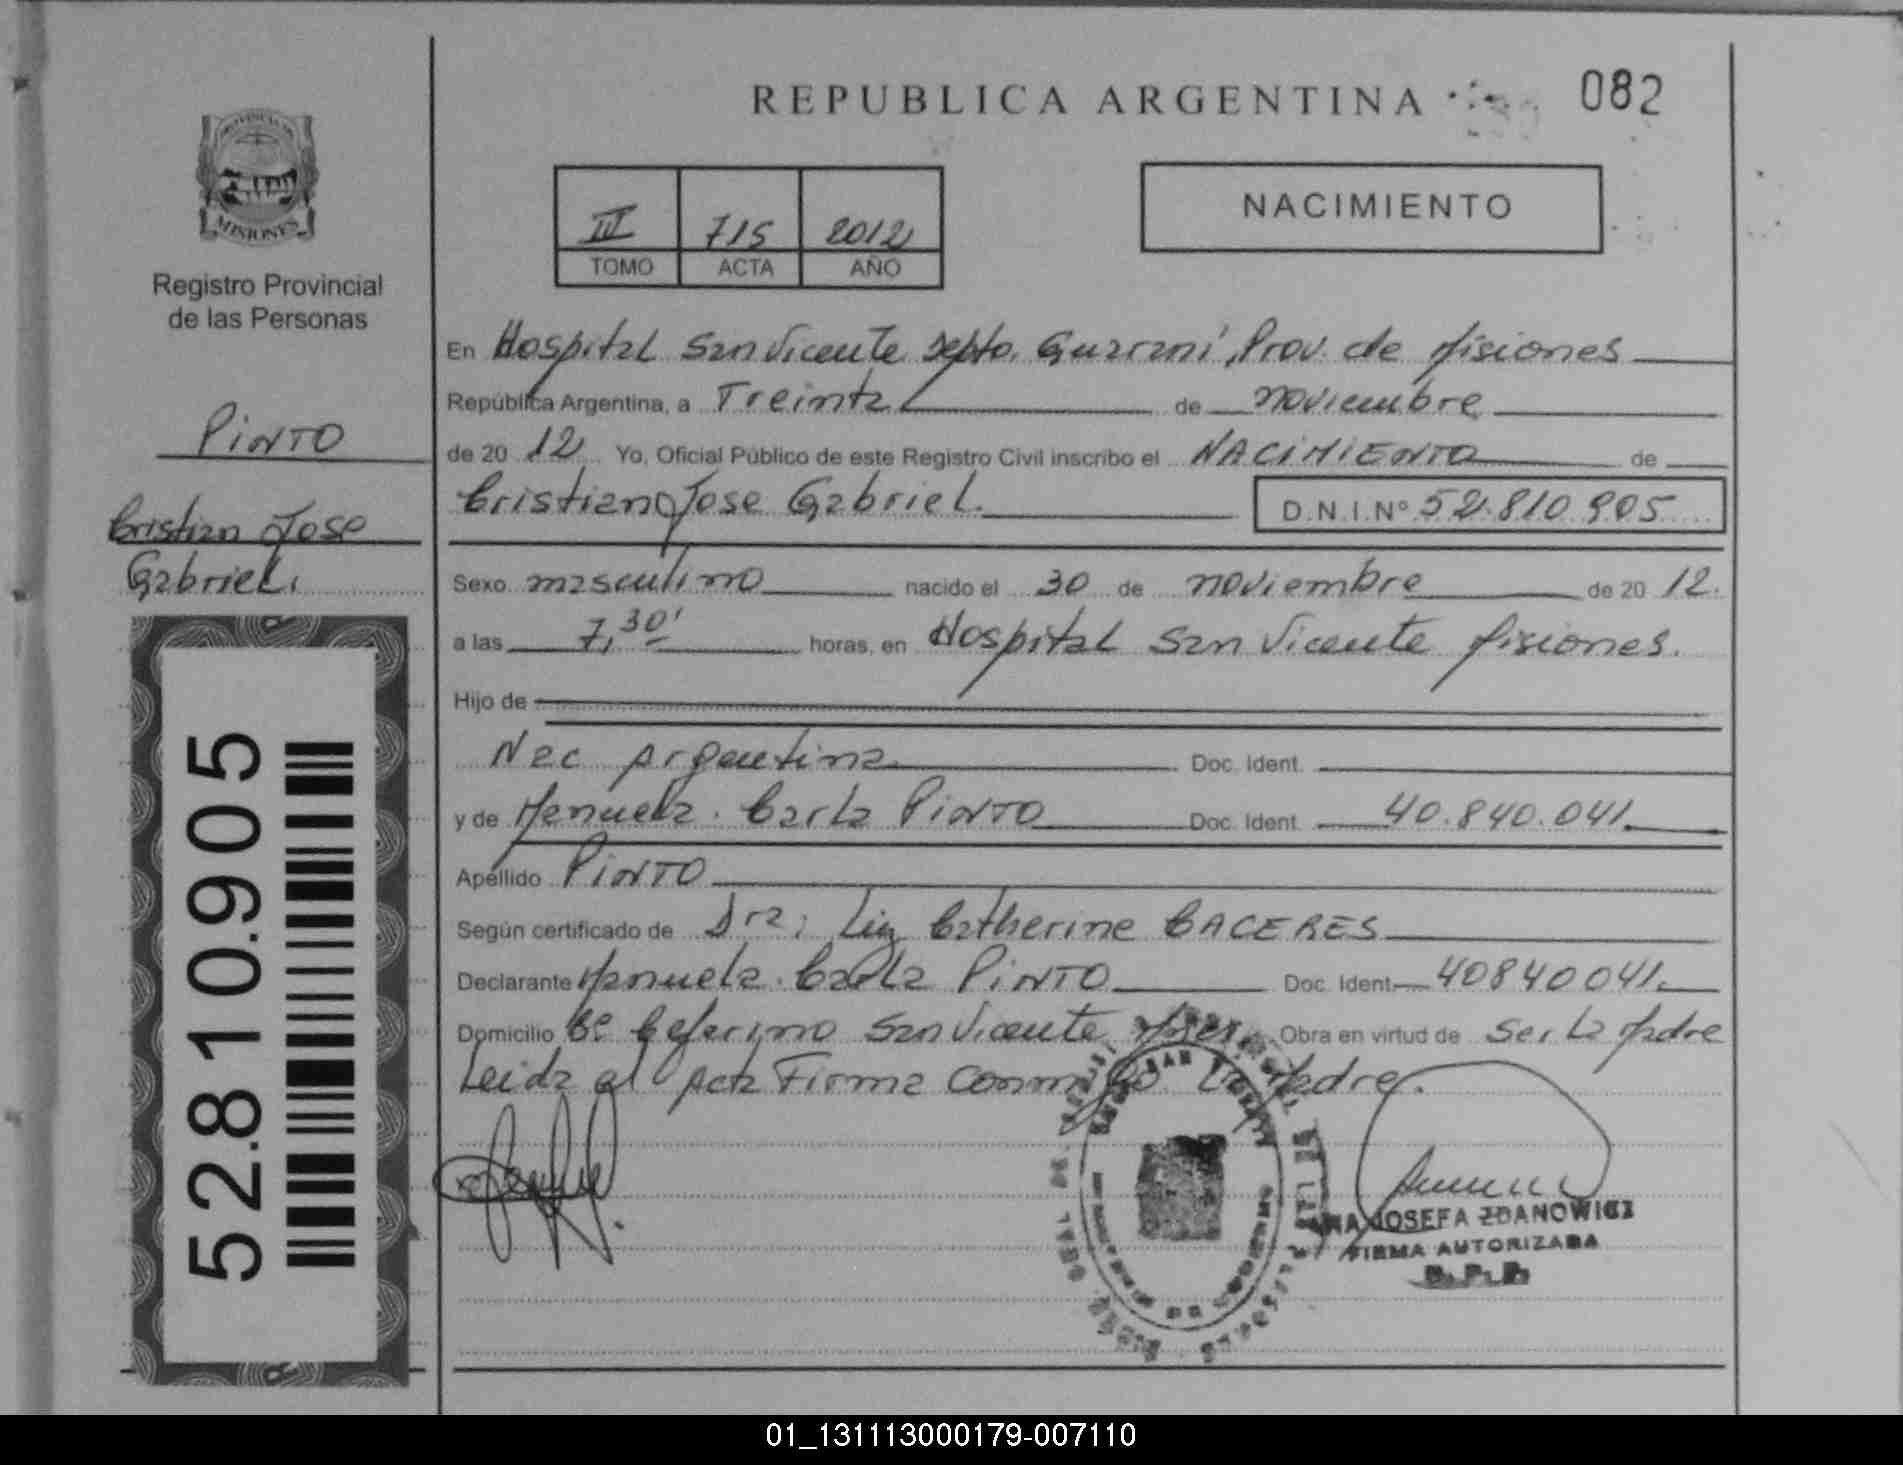 REPUBLICA ARGENTINA
082
PROVINCIA DE
MISIONES
Registro Provincial
de las Personas
III 715 2012
TOMO ACTA AÑO
NACIMIENTO
PINTO
Cristian Jose
Gabriel.
52.810.905
En Hospital San Vicente Depto. Guaraní, Prov. de Misiones
República Argentina, a Treinta de noviembre
de 20 12 Yo, Oficial Público de este Registro Civil inscribo el NACIMIENTO de
Cristian Jose Gabriel. D.N.I.Nº 52.810.905
Sexo masculino nacido el 30 de noviembre de 20 12.
a las 7,30' horas, en Hospital San Vicente Misiones.
Hijo de
Nac Argentina Doc. Ident.
y de Manuela. Carla PINTO Doc. Ident. 40.840.041.
Apellido PINTO
Según certificado de Dra: Liz Catherine CACERES
Declarante Manuela. Carla PINTO Doc. Ident. 40840041.
Domicilio Bº Ceferino San Vicente Mnes. Obra en virtud de Ser La Madre
Leida el Acta Firma Conmigo La Madre.
ANA JOSEFA ZDANOWICZ
FIRMA AUTORIZADA
R.P.P.
01_131113000179-007110